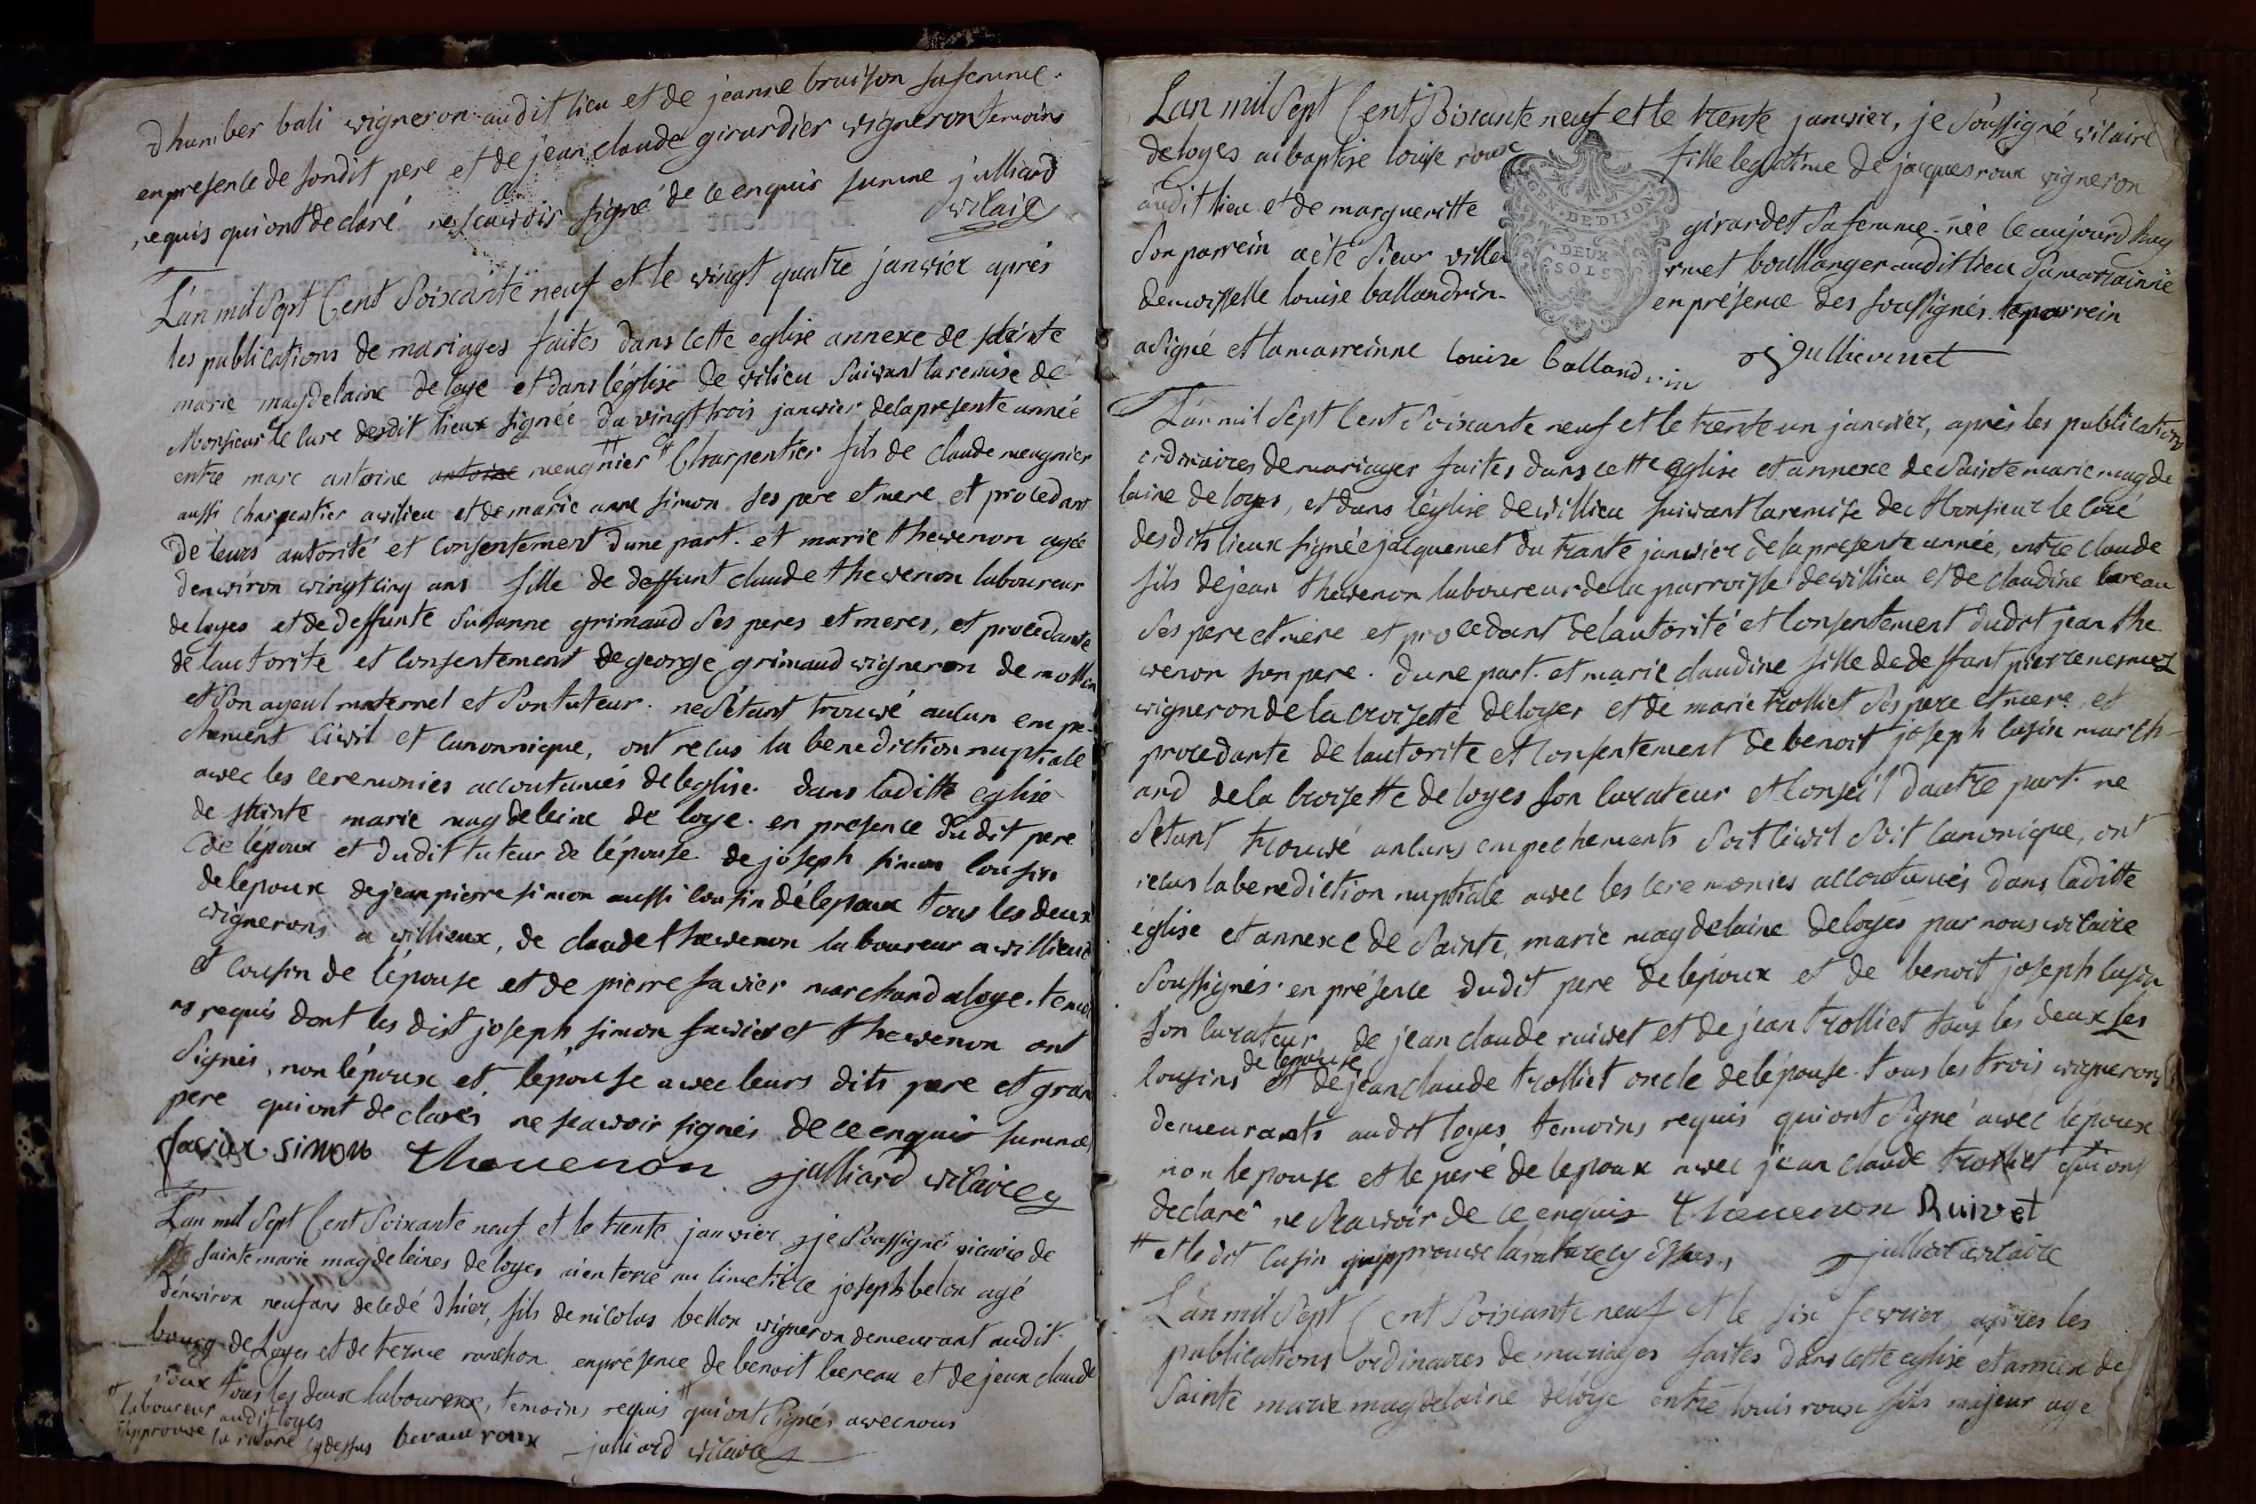 dhumber bali vigneron audit lieu et de jeanne bruison sa femme.
en presence de sondit pere et de jean claude girardier vigneron temoins
requis qui ont declaré ne scavoir signé de ce enquis summe julliard
vicaire
L'an mil Sept Cent Soixante neuf et le vingt quatre janvier aprés
les publications de mariages faites dans cette eglise annexe de sainte
marie magdelaine de loye et dans l'église de vilieu suivant la remise de
Monsieur le Cure desdit lieux signée du vingt trois janvier de la presente année
entre marc antoine antoine meugnier Charpentier fils de claude meugnier
aussi charpentier a vilieu et de marie anne simon ses pere et mere et procedant
de leurs autorité et consentement d'une part. et marie thevenon agée
denviron vingt cinq ans fille de deffunt claude thevenon laboureur
de loyes et de deffunte Susanne grimaud ses peres et meres, et procedante
de lautorite et consentement de george grimaud vigneron de mollon
et Son ayeul maternel et Son tuteur. ne s'étant trouvé aucun empe-
chement Civil et canonnique, ont recus la benediction nuptiale
avec les ceremonies accoutumés de leglise. dans laditte eglise
de sainte marie magdeleine de loye. en presence dudit pere
de lépoux et dudit tuteur de lépouse de joseph simon cousin
de lepoux de jean pierre simon aussi cousin de lepoux tous les deux
vignerons a villieux, de claude thevenon laboureur a villieux
et cousin de lépouse et de pierre favier marchand a loye. temoi
ns requis dont les dist joseph simon favier et thevenon ont
Signés, non lépoux et lépouse avec leurs dits pere et gran
pere qui ont declarés ne scavoir signés de ce enquis summe
favier simon thevenon julliard vicaire
L'an mil Sept Cent Soixante neuf et le trente janvier je Soussigné vicaire de
sainte marie magdeleines de loyes ai enterré au cimetière joseph belon agé
denviron neuf ans decedé dhier, fils de nicolas bellon vigneron demeurant audit
bourg de Loyes et de ronchon en présence de benoit bereau et de jean claude
roux tous les deux laboureux, temoins requis qui ont Signés avec nous
laboureur audit loyes
japprouve la rature cy dessus beraud roux julliard vicaire
Lan mil Sept Cent Soixante neuf et le trente janvier, je Soussigné vicaire
de loyes ai baptisé louise roux fille legitime de jacques roux vigneron
audit lieu et de margueritte girardet Sa femme. née le aujourdhuy
GEN. DE DIJON
DEUX
SOLS
Son parrein a été Sieur ville rmet boullanger audit lieu Sa marrainne
demoiselle louise ballandrin en présence des soussignés. le parrein
a Signé et la marreinne louise balland rin
L'an mil Sept Cent Soixante neuf et le trente un janvier, après les publications
ordinaires de mariages faites dans cette eglise et annexe de Sainte marie magde
laine de loyes, et dans l'église de villieu suivant la remise de Monsieur le Curé
desdits lieux signée jacquemet du trante janvier de la presente année, entre claude
fils de jean thevenon laboureur de la parroisse de villieu et de claudine
Ses pere et mere et procedant de lautorité et Consentement dudit jean the
venon son pere. d'une part. et marie claudine fille de deffunt pierre
vigneron de la croisette de loyes et de marie trolliet Ses pere et mere, et
procedante de lautorite et consentement de benoit joseph cusin march-
and de la Croisette de loyes Son Curateur et Conseil dautre part. ne
Sétant trouvé aucuns empechements Soit Civil Soit Canonique, ont
recus la benediction nuptiale avec les ceremonies accoutumés dans laditte
église et annexe de Sainte, marie magdelaine de loyes par nous vicaire
Soussignés. en présence dudit pere de lépoux et de benoit joseph cusin
Son Curateur, de jean claude ruivet et de jean trolliet tous les deux Ses
de lepouse
cousins et de jean claude trolliet oncle de lépouse. tous les trois vignerons
demeurants audit loyes temoins requis qui ont Signé avec lépoux
non lepouse et le peré de lepoux avec jean claude trolliet qui ont
declaré ne Scavoir de ce enquis thevenon Ruivet
et le dit Cusin japprouve la rature cy dessus, julliard vicaire
L'an mil Sept Cent Soixante neuf et le six fevrier après les
publications ordinaires de mariages faites dans cette eglise et annexe de
Sainte marie magdelaine de loye entre louis roux fils majeur agé